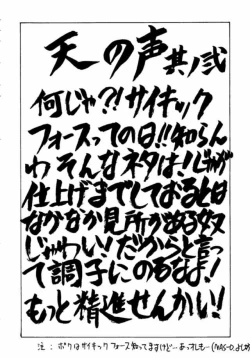 天の声 其ノ弐
何じゃ?!サイキック
フォースっての日!!知らん
わそんなネタは!じゃが
仕上げまでしておるとは
なかなか見所がある奴
じゃわい!だからと言っ
て調子にのるなよ!
もっと精進せんかい!
注:ボクはサイキックフォース知ってますけど…あっすしも…